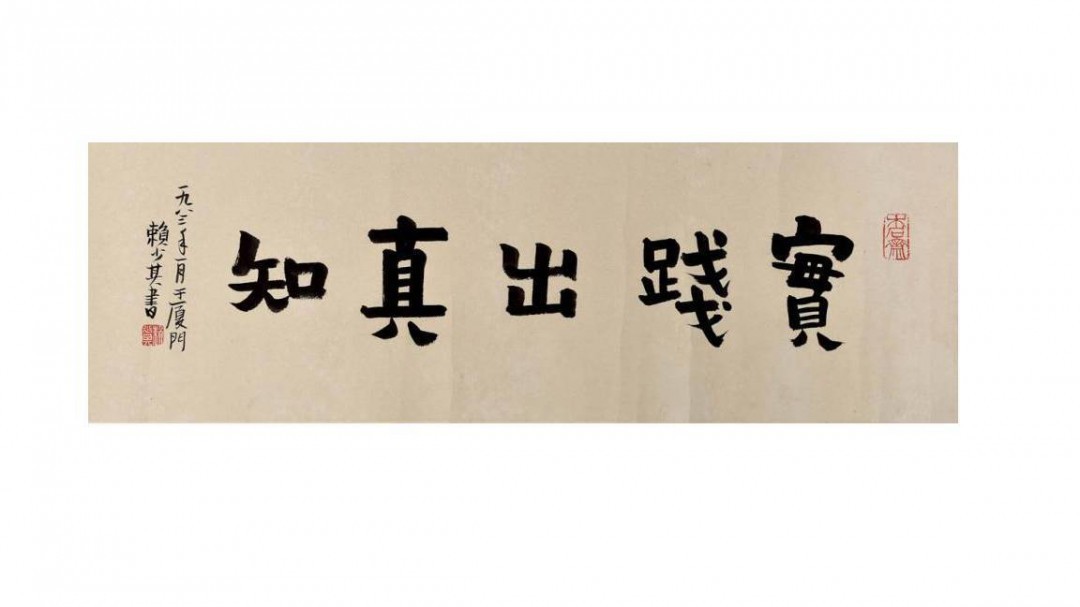 木石齋
實踐出真知
一九八三年一月于厦門
賴少其書